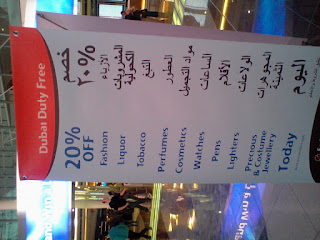 Dubai Duty Free
خصم
٢٠%
الأزياء
المشروبات
الكحولية
التبغ
العطور
مواد التجميل
الساعات
الأقلام
الولاعات
المجوهرات
الثمينة
اليوم
20%
OFF
Fashion
Liquor
Tobacco
Perfumes
Cosmetics
Watches
Pens
Lighters
Precious
& Costume
Jewellery
Today